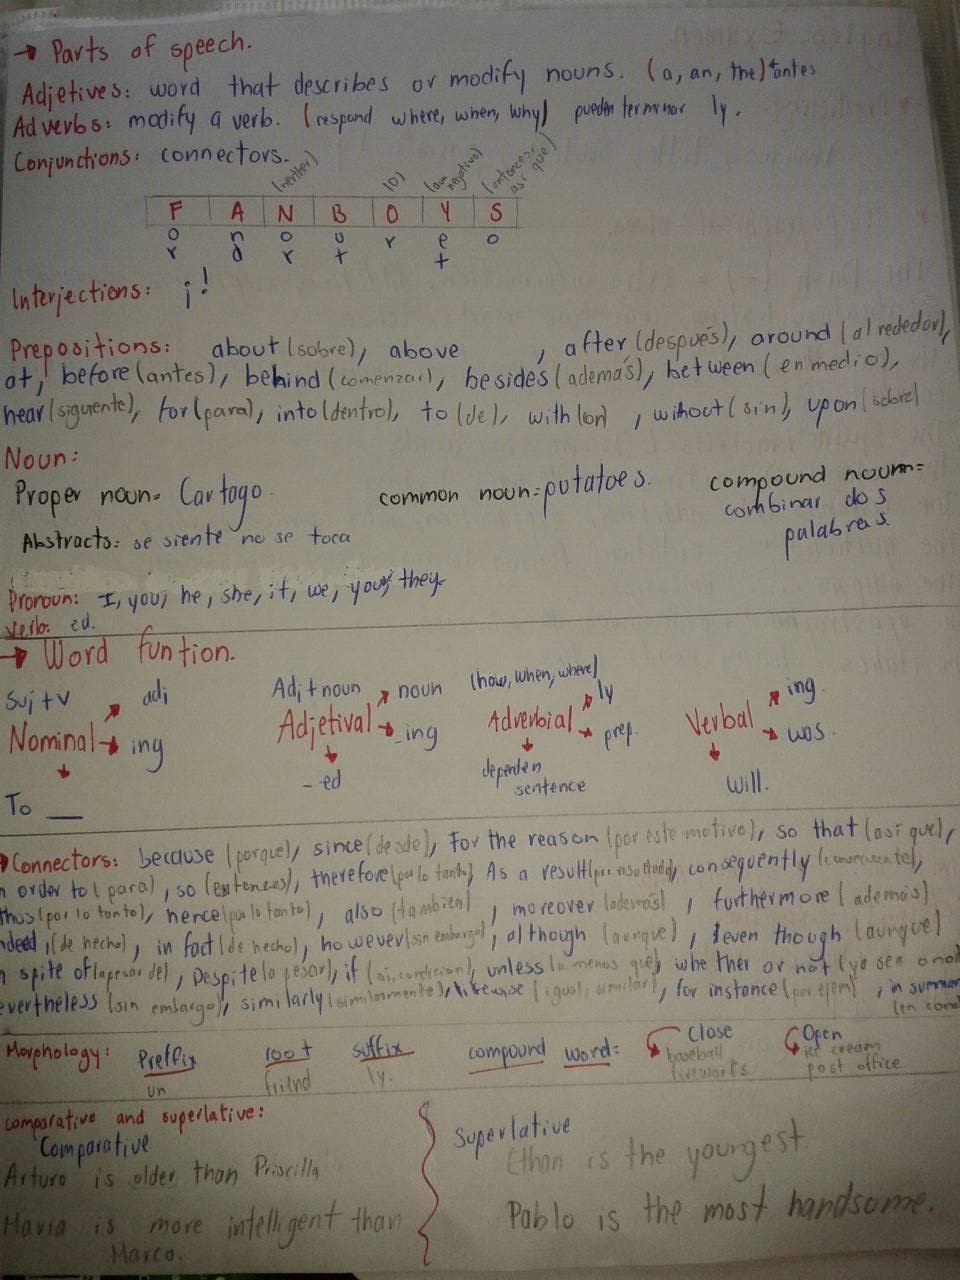 → Parts of speech.
Adjetives: word that describes or modify nouns. (a, an, the) antes
Adverbs: modify a verb. (respond where, when, why) pueden terminar ly.
Conjunctions: connectors.
(neither) (o) (aun negativo) (entonces, así que)
F A N B O Y S
o n o u r e o
r d r t t
Interjections: ¡!
Prepositions: about (sobre), above , after (después), around (al rededor),
at, before (antes), behind (comenzar), besides (además), between (en medio),
near (siguiente), for (para), into (dentro), to (de), with (con) , wihout (sin), upon (sobre)
Noun:
Proper noun= Cartago. common noun= potatoes. compound noun=
combinar dos
palabras.
Abstracts: se siente no se toca
Pronoun: I, you, he, she, it, we, you, they
Verb: ed.
→ Word funtion.
Suj + v adj Adj + noun noun (how, when, where) ly ing.
Nominal → ing Adjetival → _ing Adverbial → prep. Verbal → was.
To __ - ed dependen sentence will.
Connectors: because (porque), since (desde), For the reason (por este motivo), so that (así que),
n order to (para), so (entonces), therefore (por lo tanto), As a result (por resultado), consequently (consecuente),
thus (por lo tanto), hence (por lo tanto), also (tambien) , moreover (además) , furthermore (además)
ndeed , (de hecho), in fact (de hecho), however (sin embargo), although (aunque) , even though (aunque)
n spite of (apesar de), Despite (a pesar), if (si, condicion), unless (a menos que), whether or not (ya sea o no)
evertheless (sin embargo), similarly (similarmente), likewise (igual, similar), for instance (por ejem) , in summar
(en conc
Morphology: Preffix root suffix compound word: Close Open
un friend ly. baseball ice cream
fireworks post office
comparative and superlative:
Comparative
Arturo is older than Priscilla
Maria is more intelligent than
Marco.
Superlative
Ethan is the youngest.
Pablo is the most handsome.